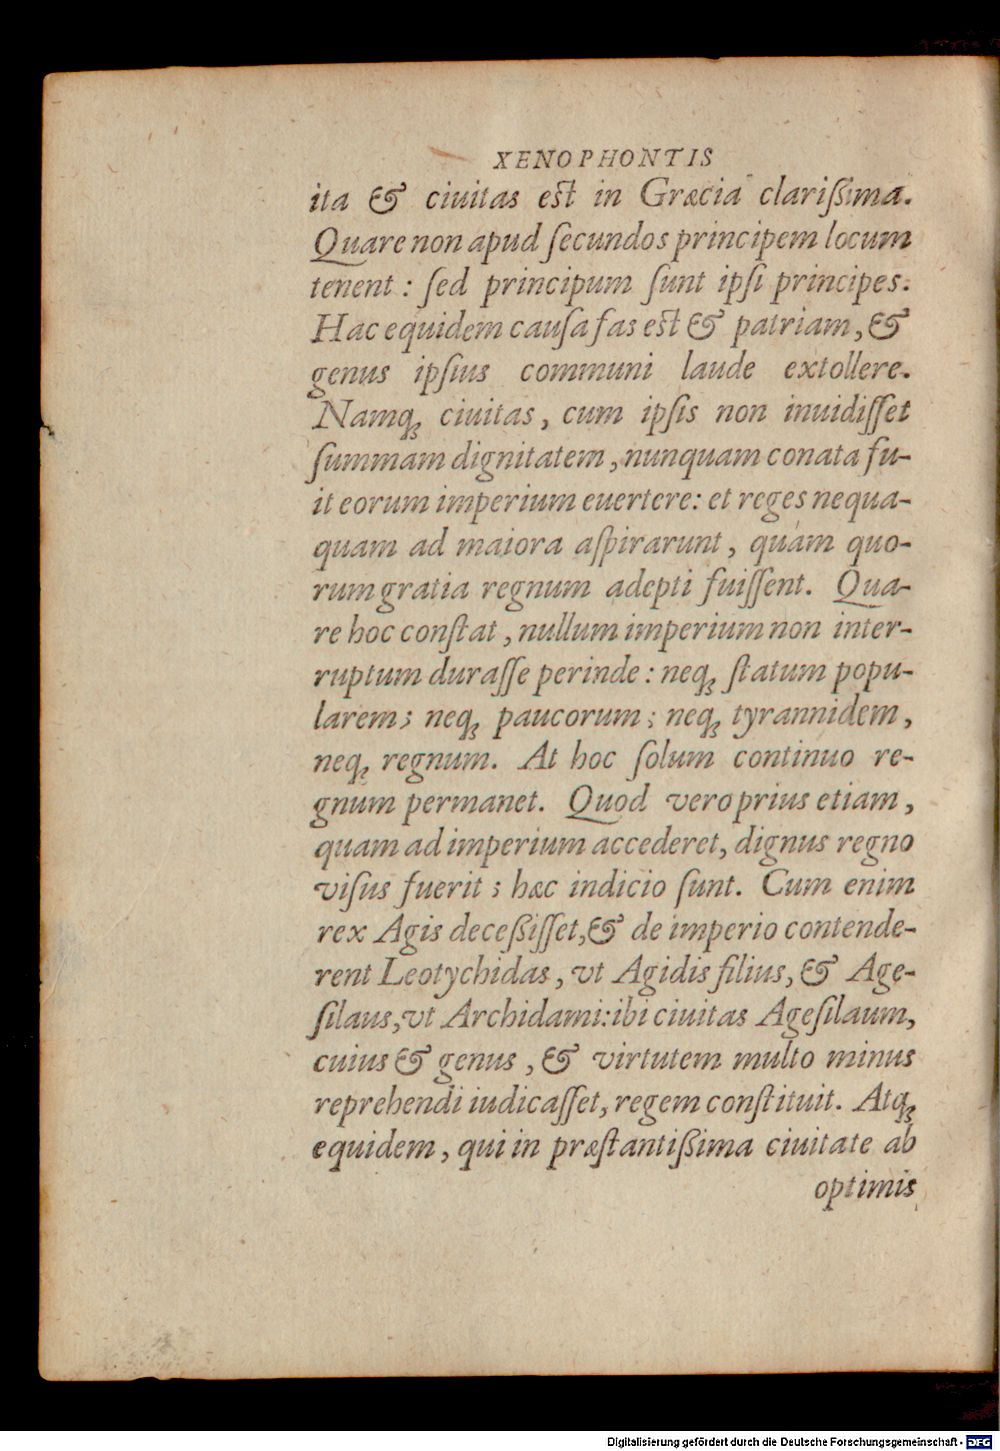 XENOPHONTIS
ita & ciuitas est in Græcia clarißima.
Quare non apud ſecundos principem locum
tenent : ſed principum ſunt ipſi principes.
Hac equidem cauſa fas est & patriam, &
genus ipſius communi laude extollere.
Namq; ciuitas, cum ipſis non inuidiſſet
ſummam dignitatem, nunquam conata fu-
it eorum imperium euertere: et reges nequa-
quam ad maiora aſpirarunt, quàm quo-
rum gratia regnum adepti fuiſſent. Qua-
re hoc conſtat, nullum imperium non inter-
ruptum duraſſe perinde: neq; ſtatum popu-
larem; neq; paucorum; neq; tyrannidem,
neq; regnum. At hoc ſolum continuo re-
gnum permanet. Quod vero prius etiam,
quam ad imperium accederet, dignus regno
viſus fuerit; hæc indicio ſunt. Cum enim
rex Agis deceßiſſet, & de imperio contende-
rent Leotychidas, vt Agidis filius, & Age-
ſilaus, vt Archidami: ibi ciuitas Ageſilaum,
cuius & genus, & virtutem multo minus
reprehendi iudicaſſet, regem conſtituit. Atq;
equidem, qui in præſtantißima ciuitate ab
optimis
Digitalisierung gefördert durch die Deutsche Forschungsgemeinschaft - DFG